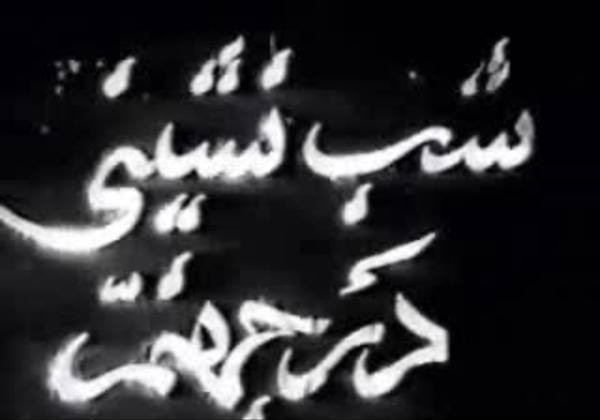 شب نشینی
در جهنّم